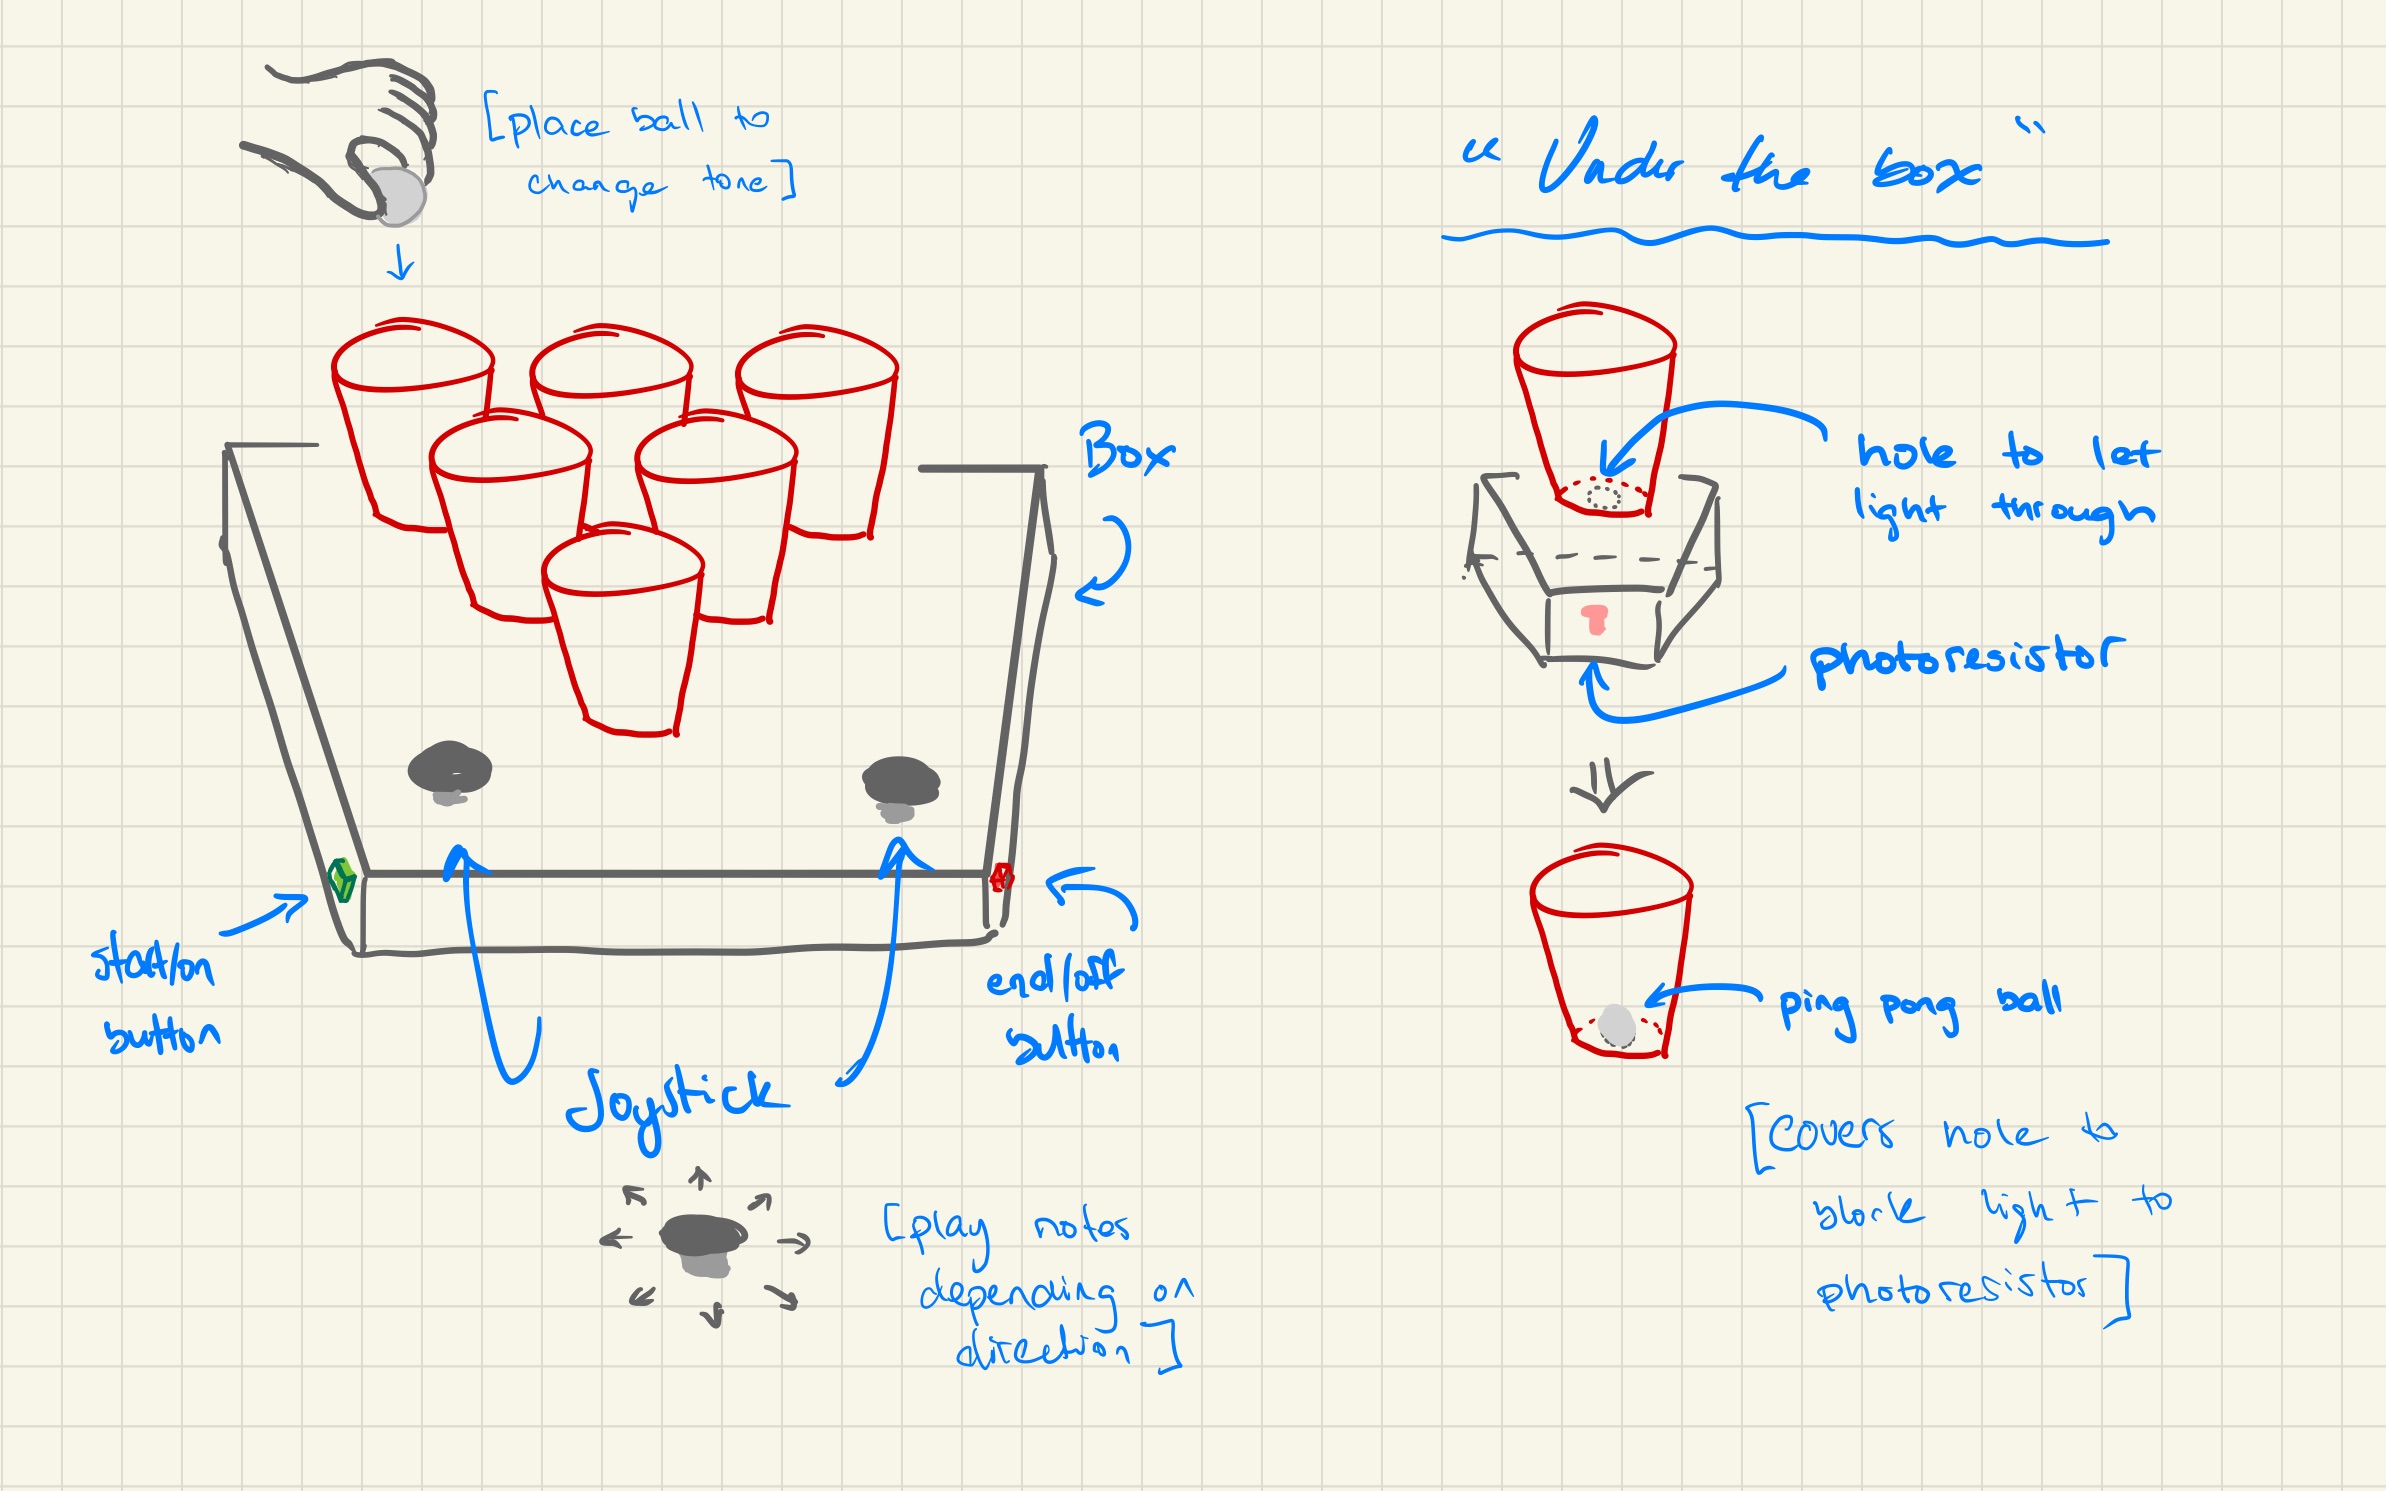 [place ball to
change tone]
Box
start/on
button
end/off
button
Joystick
[play notes
depending on
direction]
"Under the box"
hole to let
light through
photoresistor
ping pong ball
[covers hole to
block light to
photoresistor]